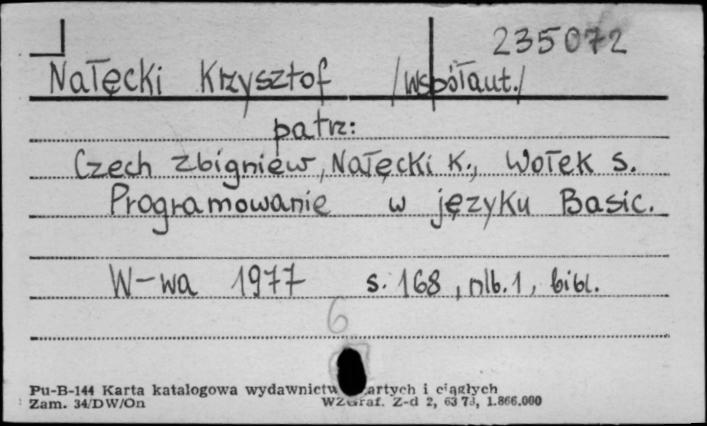 235072
Nałęcki Krzysztof /współaut./
patrz:
Czech Zbigniew, Nałęcki K., Wołek S.
Programowanie w języku Basic.
W-wa 1977 s. 168, nlb. 1, bibl.
6
Pu-B-144 Karta katalogowa wydawnictw i ciągłych
Zam. 34/DW/On WZGraf. Z-d 2, 1.866.000